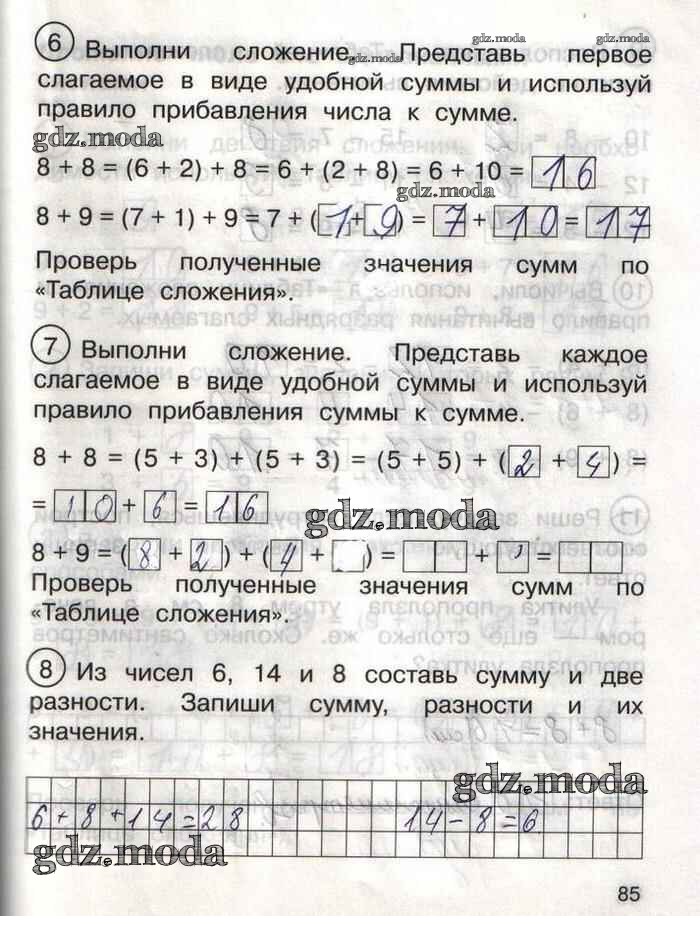 6 Выполни сложение. Представь первое
слагаемое в виде удобной суммы и используй
правило прибавления числа к сумме.
8 + 8 = (6 + 2) + 8 = 6 + (2 + 8) = 6 + 10 = 16
8 + 9 = (7 + 1) + 9 = 7 + (1 + 9) = 7 + 10 = 17
Проверь полученные значения сумм по
«Таблице сложения».
7 Выполни сложение. Представь каждое
слагаемое в виде удобной суммы и используй
правило прибавления суммы к сумме.
8 + 8 = (5 + 3) + (5 + 3) = (5 + 5) + (2 + 4) =
= 10 + 6 = 16
8 + 9 = (8 + 2) + (4 + ) = + = 
Проверь полученные значения сумм по
«Таблице сложения».
8 Из чисел 6, 14 и 8 составь сумму и две
разности. Запиши сумму, разности и их
значения.
6+8+14=28 14-8=6
85
gdz.moda
gdz.moda
gdz.moda
gdz.moda
gdz.moda
gdz.moda
gdz.moda
gdz.moda